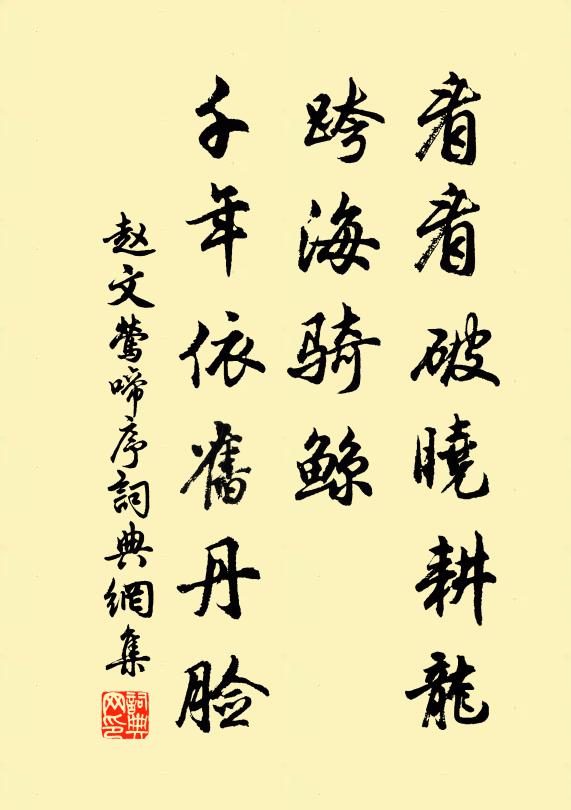 看看破曉耕龍
跨海骑鲸
千年依舊丹脸
赵文鶯啼序詞典網集
詞典网印